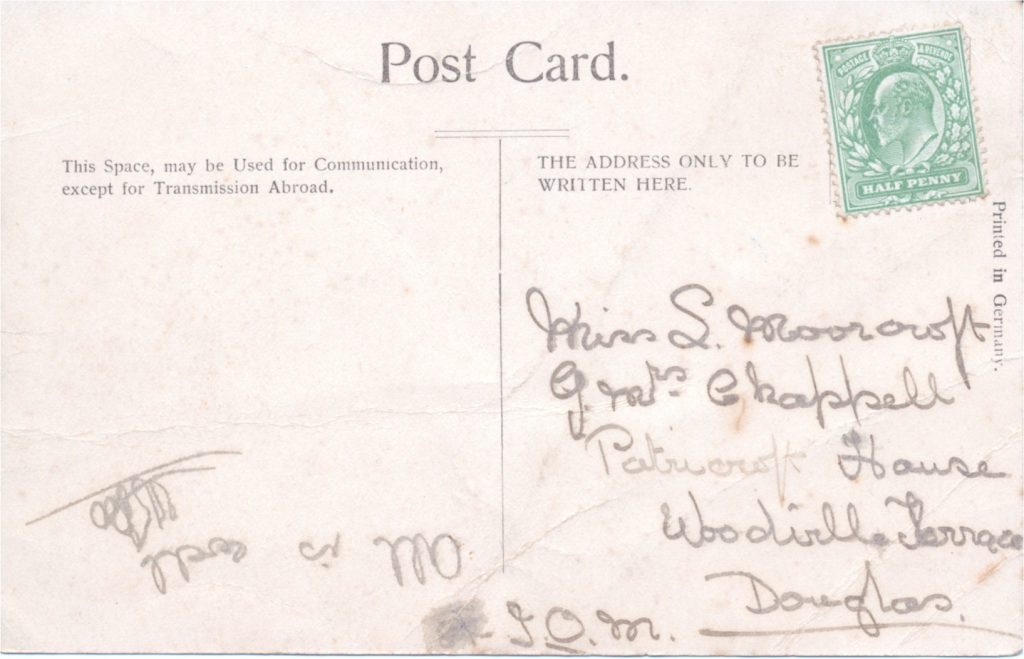 Post Card.
This Space, may be Used for Communication,
except for Transmission Abroad.
THE ADDRESS ONLY TO BE
WRITTEN HERE.
POSTAGE & REVENUE
HALF PENNY
Printed in Germany.
Miss L. Moorcroft
Mrs. Chappell
Patricroft House
Woodville Terrace
Douglas.
I.O.M.
All is well